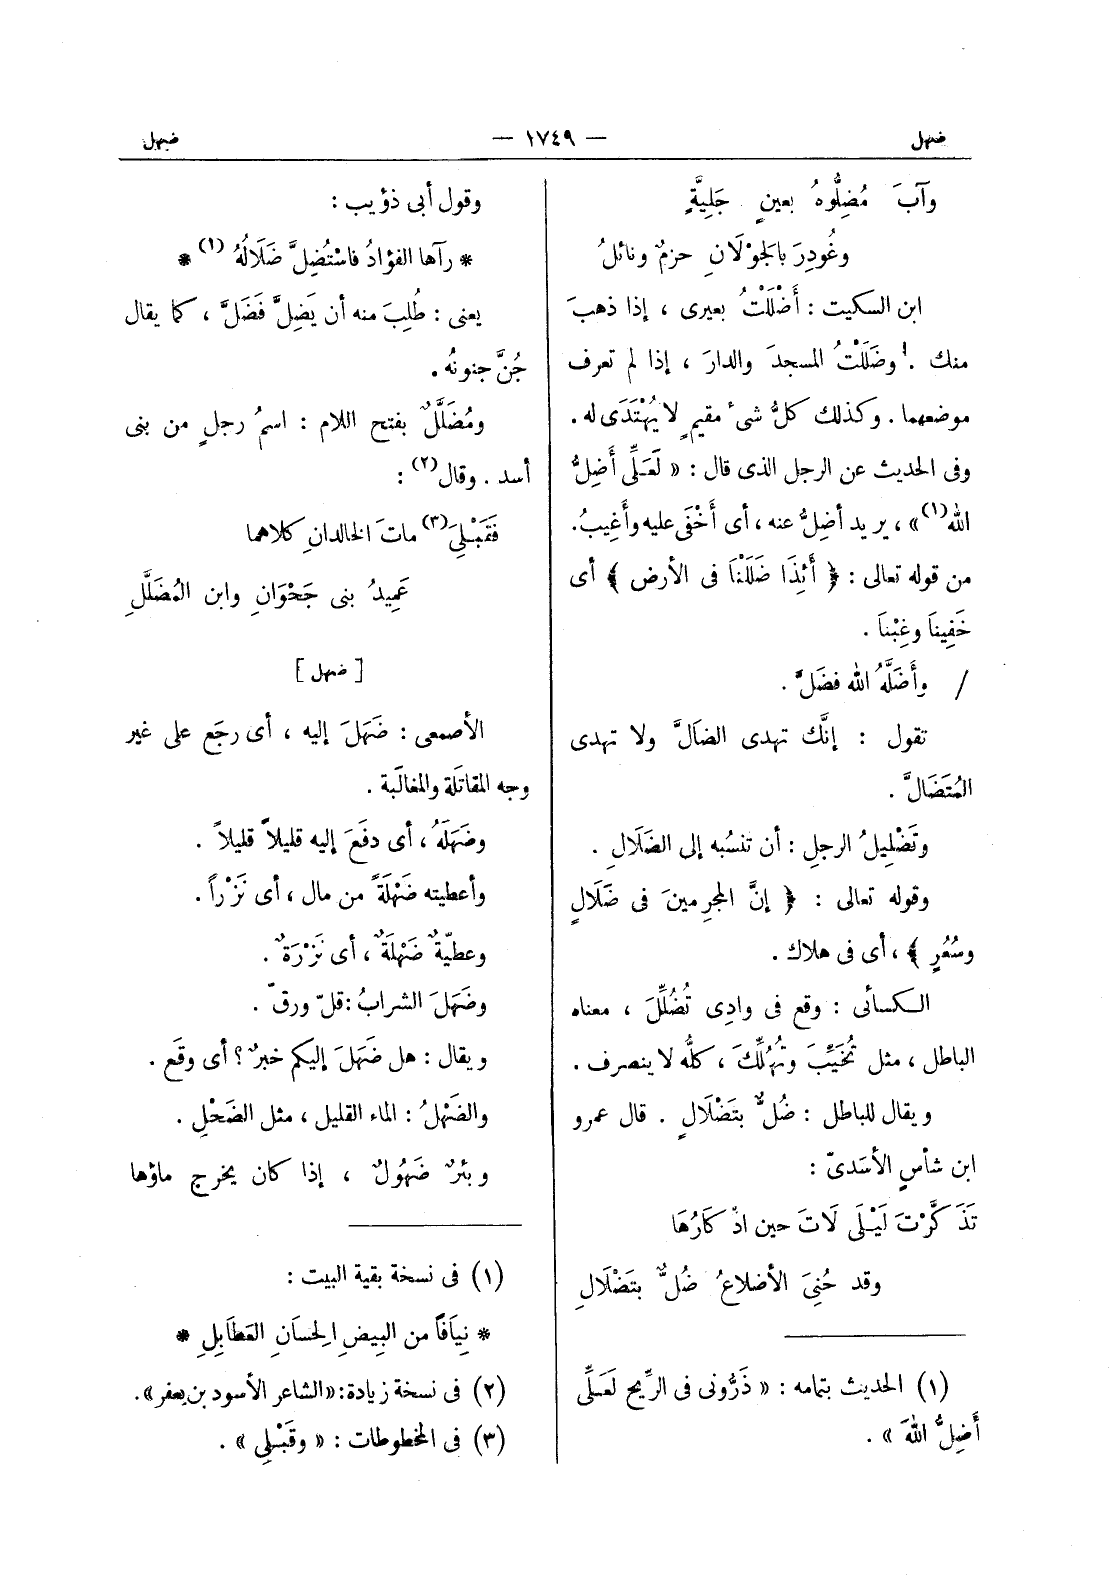 ضهل
— ١٧٤٩ —
ضهل
وآبَ مُضِلُّوهُ بعينٍ جَلِيَّةٍ
وغُودِرَ بالجوْلَانِ حزمٌ ونائلُ
ابن السكيت : أَضْلَلْتُ بعيرى ، إذا ذهبَ
منك . وضَلَلْتُ المسجدَ والدارَ ، إذا لم تعرف
موضعهما . وكذلك كلُّ شىءٍ مقيمٍ لا يُهْتَدَى له .
وفى الحديث عن الرجل الذى قال : « لَعَلِّى أَضِلُّ
الله(١) » ، يريد أضِلُّ عنه ، أى أَخْفَى عليه وأَغِيبُ .
من قوله تعالى : ﴿ أَئِذَا ضَلَلْنَا فى الأرض ﴾ أى
خَفِيناَ وغِبْناَ .
/ وأَضَلَّهُ الله فضَلَّ .
تقول : إنَّك تهدى الضاَلَّ ولا تهدى
المُتَضَالَّ .
وتَضْلِيلُ الرجلِ : أن تنسُبه إلى الضَلَالِ .
وقوله تعالى : ﴿ إنَّ المجرِمينَ فى ضَلَالٍ
وسُعُرٍ ﴾ ، أى فى هلاك .
الكسائى : وقع فى وادِى تُضُلِّلَ ، معناه
الباطل ، مثل تُخُيِّبَ وتُهُلِّكَ ، كلُّه لا ينصرف .
ويقال للباطل : ضُلٌّ بتَضْلَالٍ . قال عمرو
ابن شأسٍ الأسَدىّ :
تَذَكَّرْتَ لَيْلَى لَاتَ حين ادِّكَارُهَا
وقد حُنِىَ الأضلاعُ ضُلٌّ بتَضْلَالِ
(١) الحديث بتمامه : « ذَرُّونى فى الرِّيح لَعَلِّى
أَضِلُّ اللهَ » .
وقول أبى ذؤيب :
* رآها الفؤادُ فاسْتُضِلَّ ضَلَالُهُ(١) *
يعنى : طُلِبَ منه أن يَضِلَّ فَضَلَّ ، كما يقال
جُنَّ جنونُه .
ومُضَلَّلٌ بفتح اللام : اسمُ رجلٍ من بنى
أسد . وقال(٢) :
فَقَبْلِىَ(٣) ماتَ الخالدانِ كلاهما
عَمِيدُ بنى جَحْوَانِ وابن المُضَلَّلِ
[ ضهل ]
الأصمعى : ضَهَلَ إليه ، أى رجَع على غير
وجه المقاتَلة والمغالَبة .
وضَهَلَهُ ، أى دفَعَ إليه قليلاً قليلاً .
وأعطيته ضَهْلَةً من مال ، أى نَزْراً .
وعطيّةٌ ضَهْلَةٌ ، أى نَزْرَةٌ .
وضَهَلَ الشرابُ : قلّ ورقّ .
ويقال : هل ضَهَلَ إليكم خبرٌ ؟ أى وقَع .
والضَهْلُ : الماء القليل ، مثل الضَحْلِ .
وبئرٌ ضَهُولٌ ، إذا كان يخرج ماؤها
(١) فى نسخة بقية البيت :
* نِيَافًا من البِيضِ الحِسَانِ العَطَابِلِ *
(٢) فى نسخة زيادة : « الشاعر الأسود بن يعفر » .
(٣) فى المخطوطات : « وقَبْلِى » .